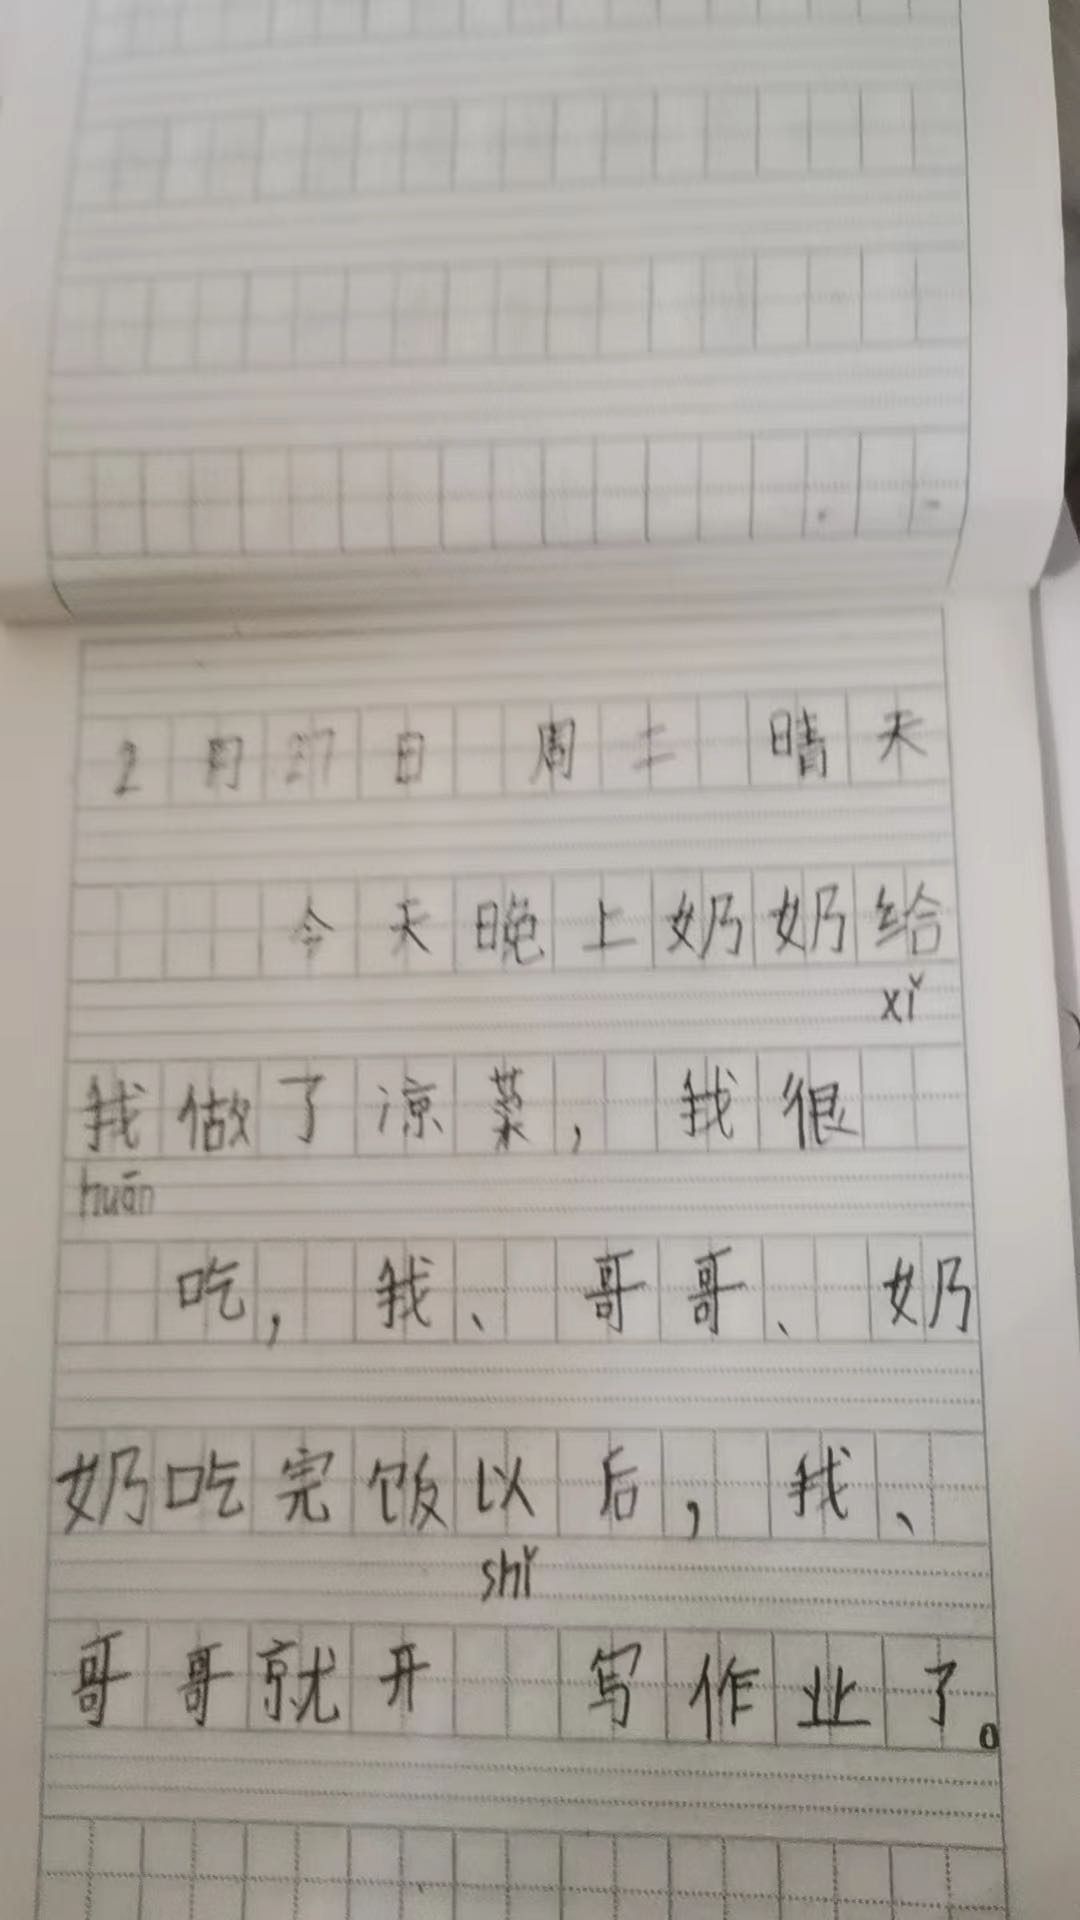 2月27日 周二 晴天
今天晚上奶奶给
xǐ
我做了凉菜，我很
huān
吃，我、哥哥、奶
奶吃完饭以后，我、
shǐ
哥哥就开 写作业了。